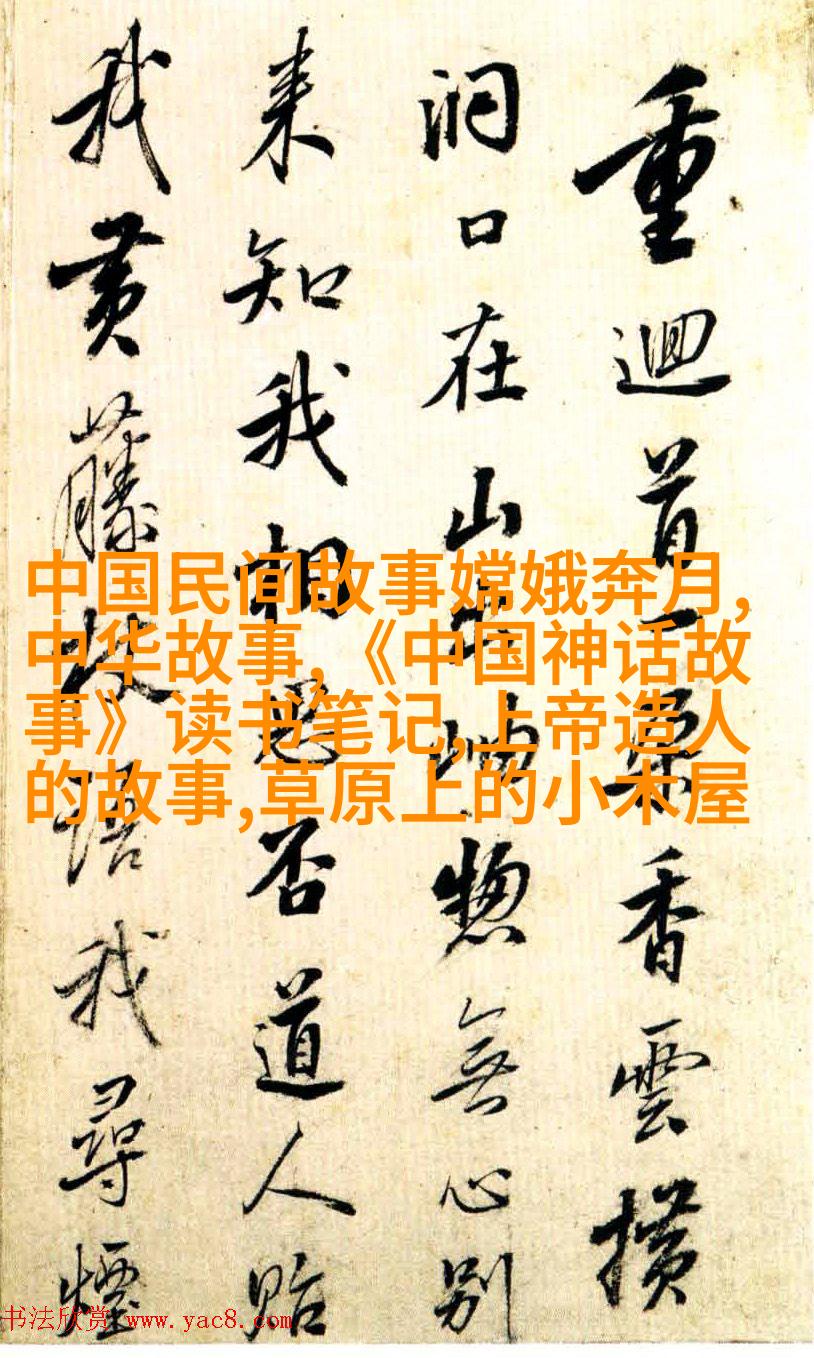 重迴首一香雲
洞口在山惣無心别
来知我相思否道人貽
我黄藤杖語我尋煙
中国民间故事嫦娥奔月,
中华故事,《中国神话故
事》读书笔记,上帝造人
的故事,草原上的小木屋
书法欣赏 www.yac8.com